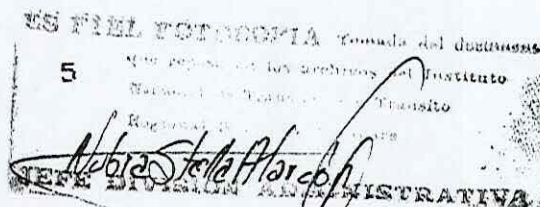 ES FIEL FOTOCOPIA Tomada del documento
5
que reposa en los archivos del Instituto
Nacional de Transporte y Tránsito
Regional
Nubia Stella Alarcón
JEFE DIVISION ADMINISTRATIVA